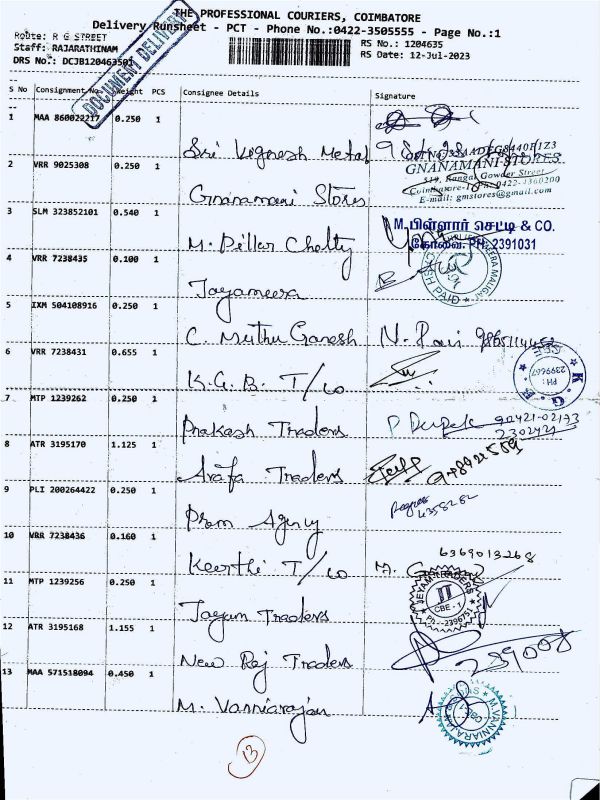 THE PROFESSIONAL COURIERS, COIMBATORE
Delivery Runsheet - PCT - Phone No.:0422-3505555 - Page No.:1
Route: R G STREET
RS No.: 1204635
Staff: RAJARATHINAM
RS Date: 12-Jul-2023
DRS No.: DCJB120463501
DOCUMENT DELIVERY
S No Consignment No. Weight PCS Consignee Details Signature
1 MAA 860022217 0.250 1
Sri Vignesh Metal
2 VRR 9025308 0.250 1
Gnanamani Stores
GNANAMANI STORES
519, Rangai Gowder Street
Coimbatore-1 Ph:0422-4360200
E-mail: gmstores@gmail.com
3 SLM 323852101 0.540 1
M. Pillar Chetty
M. பிள்ளார் செட்டி & CO.
கோவை. PH: 2391031
4 VRR 7238435 0.100 1
Jayameera
CASH PAID
5 IXM 504108916 0.250 1
C. Muthu Ganesh
6 VRR 7238431 0.655 1
K.G.B. T/co
K. G. B.
PH: 2399667
7 MTP 1239262 0.250 1
Prakash Traders P Deepak 90421-02173
2302421
8 ATR 3195170 1.125 1
Arafa Traders
9 PLI 200264422 0.250 1
Prom Agency
10 VRR 7238436 0.160 1
Keerthi T/co
6369013268
11 MTP 1239256 0.250 1
Jayam Traders
JEYAM TRADERS
CBE - 1
Ph:-2396751
12 ATR 3195168 1.155 1
New Raj Traders
239008
13 MAA 571518094 0.450 1
M. Vanniarajan
M.VANNIARAJAN
13